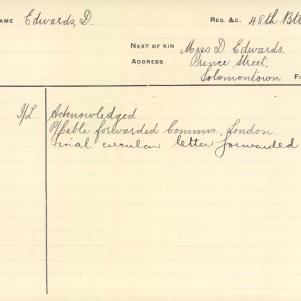 NAME Edwards, D. REG. &C. 48th Btt
NEXT OF KIN Miss D. Edwards,
ADDRESS Prince Street,
Solomontown F
I/L. Acknowledged
O/Cable forwarded Commns, London.
Final circular letter forwarded